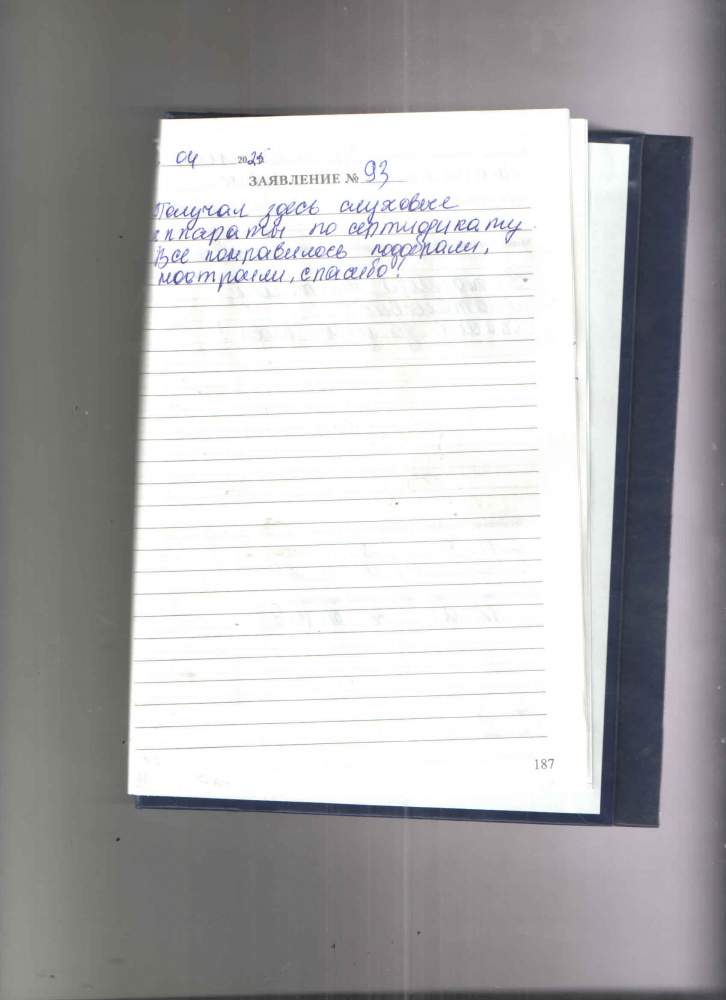 . 04 2025
ЗАЯВЛЕНИЕ № 93
Получал здесь слуховые
аппараты по сертификату.
Все понравилось подобрали,
настроили, спасибо!
187